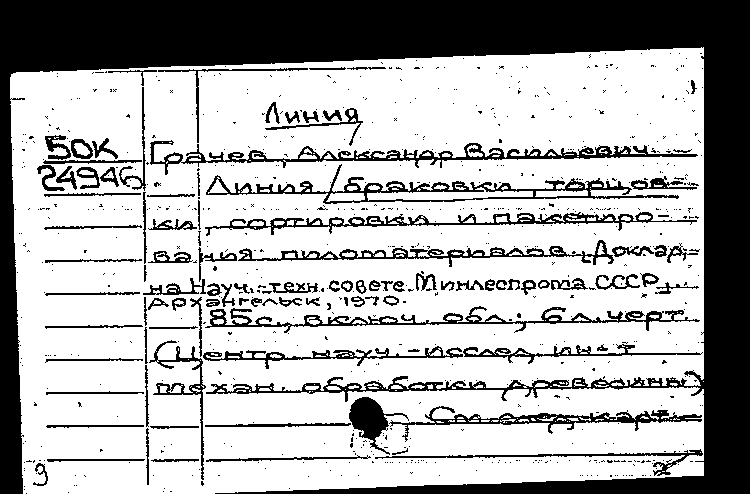 Линия
50К
24946
Грачев, Александр Васильевич.
Линия браковки, торцов-
ки, сортировки и пакетиро-
вания пиломатериалов. Доклад
на Науч.-техн. совете Минлеспрома СССР.
Архангельск, 1970.
85с., включ. обл.; 6 л. черт.
(Центр. науч.-исслед. ин-т
механ. обработки древесины)
См. след. карт.
9
2